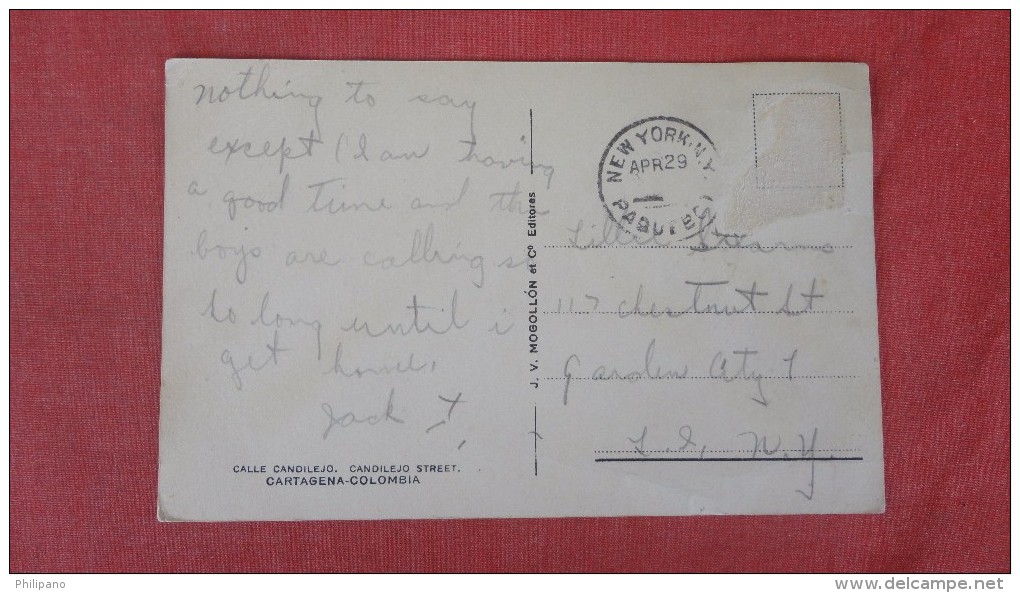 nothing to say
except I am having
a good time and the
boys are calling so
so long until i
get home.
Jack
CALLE CANDILEJO. CANDILEJO STREET.
CARTAGENA-COLOMBIA
J. V. MOGOLLÓN et Cº Editores
NEW YORK, N.Y.
APR 29
1
117 chestnut St
Garden City
L. I, N.Y.
Philipano
www.delcampe.net